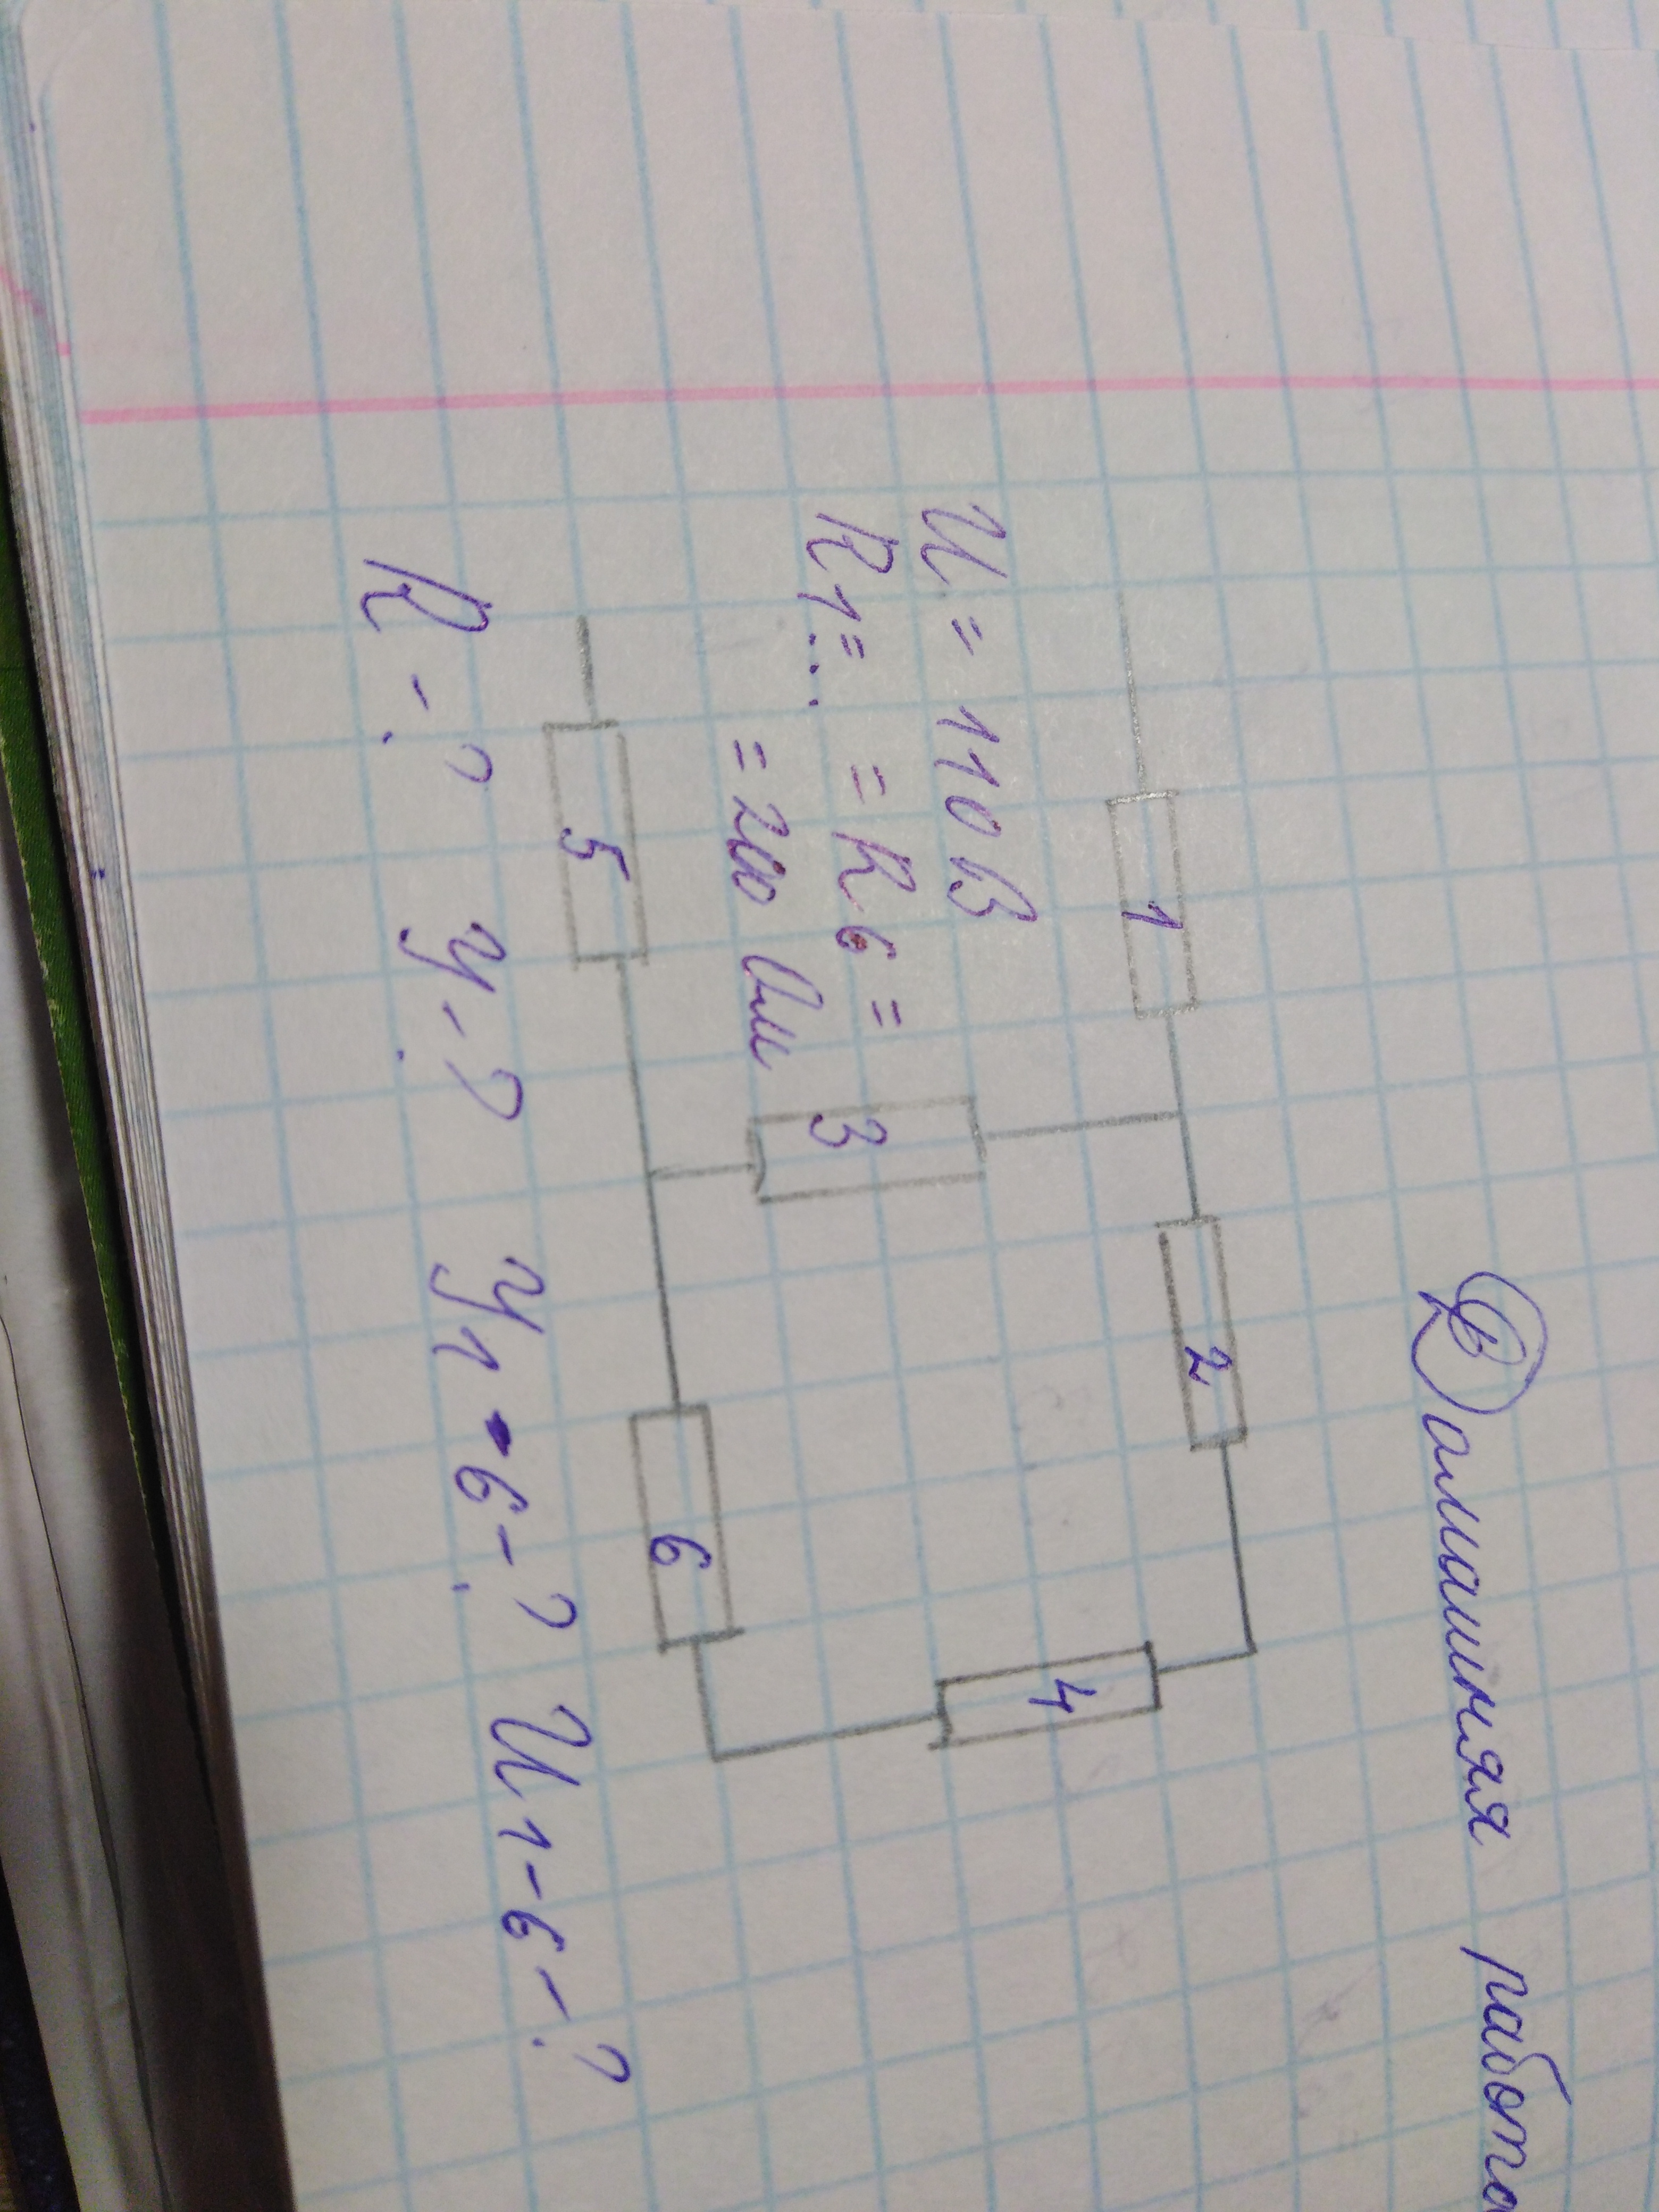 Домашняя работа
1
2
U = 110 В
R1 = ... = R6 =
= 200 Ом
3
4
5
6
R - ? У - ? У1-6 - ? U1-6 - ?